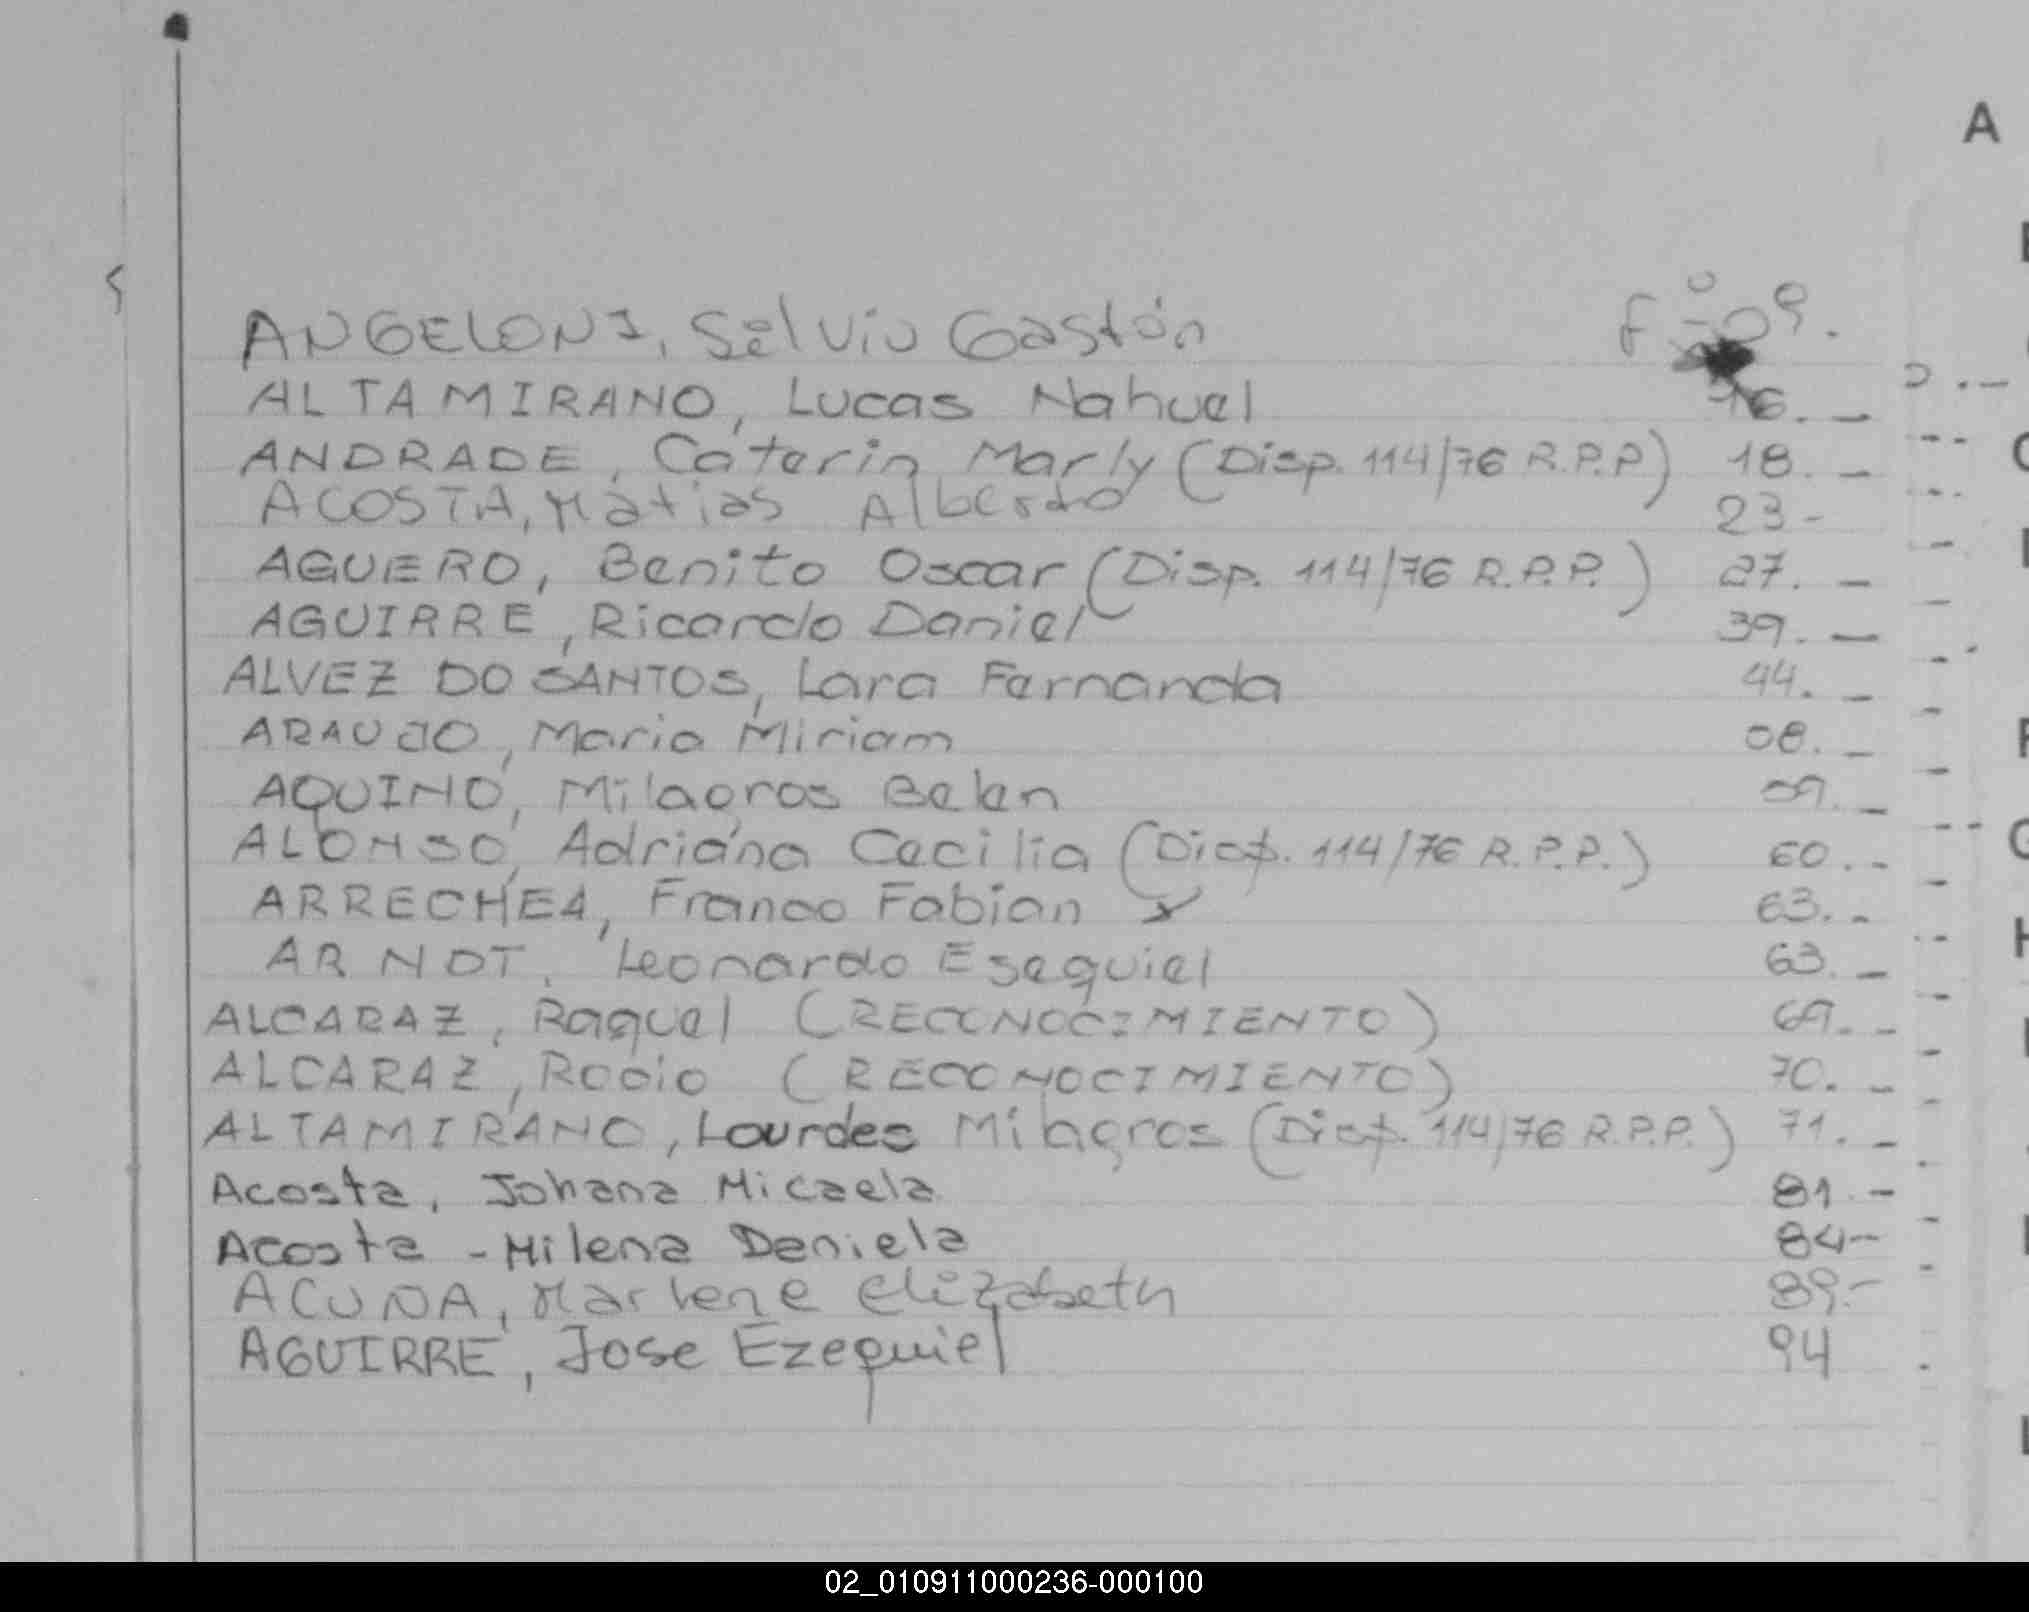 A
ANGELONI, Selvio Gastón Fº 09.
ALTAMIRANO, Lucas Nahuel 16._
ANDRADE, Caterin Marly (Disp. 114/76 R.P.P) 18._
ACOSTA, Matias Alberto 23-
AGUERO, Benito Oscar (Disp. 114/76 R.P.P.) 27._
AGUIRRE, Ricardo Daniel 39._
ALVEZ DO SANTOS, Lara Fernanda 44._
ARAUJO, Maria Miriam 08._
AQUINO, Milagros Belen 09._
ALONSO, Adriana Cecilia (Disp. 114/76 R.P.P.) 60.-
ARRECHEA, Franco Fabian 63.-
ARNOT, Leonardo Esequiel 63._
ALCARAZ, Raquel (RECONOCIMIENTO) 69.-
ALCARAZ, Rocio (RECONOCIMIENTO) 70.-
ALTAMIRANO, Lourdes Milagros (Disp. 114/76 R.P.P.) 71._
Acosta, Johana Micaela 81.-
Acosta - Milena Daniela 84-
ACUNA, Marlene Elizabeth 89.-
AGUIRRE, Jose Ezequiel 94
02_010911000236-000100